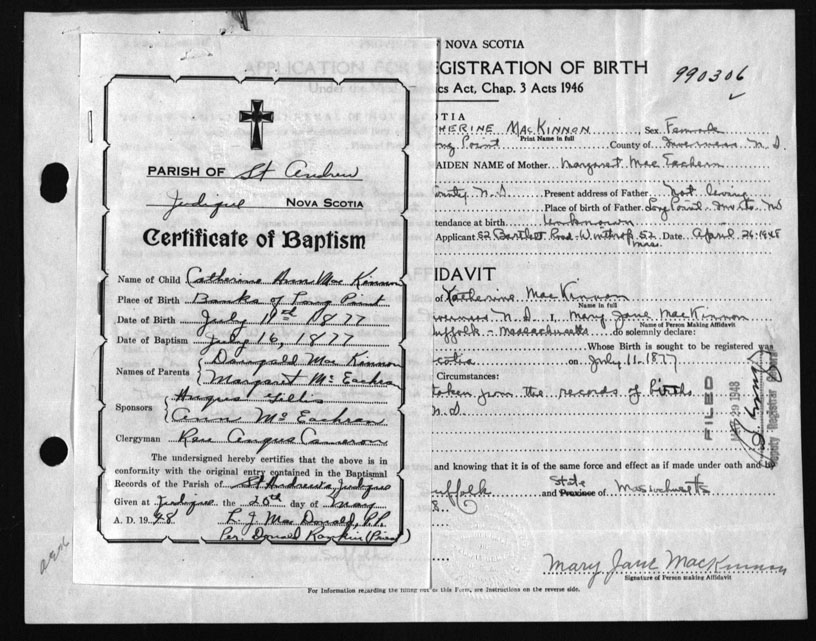 PARISH OF St Andrew
Judique NOVA SCOTIA
Certificate of Baptism
Name of Child Catherine Ann Mac Kinnon
Place of Birth Banks of Long Point
Date of Birth July 11th 1877
Date of Baptism July 16, 1877
Names of Parents
Dougald Mac Kinnon
Margaret Mc Eachern
Sponsors
Angus Gillis
Ann Mc Eachern
Clergyman Rev Angus Cameron
The undersigned hereby certifies that the above is in
conformity with the original entry contained in the Baptismal
Records of the Parish of St Andrew's Judique
Given at Judique the 20th day of May
A. D. 1948 MacDonald, P.P.
Per. Donald Rankin (Priest)
NOVA SCOTIA
APPLICATION FOR REGISTRATION OF BIRTH
990306
Act, Chap. 3 Acts 1946
OTIA
HERINE MACKINNON Sex Female
Print Name in full
ong Point County of Inverness N.S.
AIDEN NAME of Mother Margaret Mac Eachern
ounty N.S. Present address of Father Not living
Place of birth of Father Long Point Inv. Co. NS
ttendance at birth Unknown
Applicant 52 Bartlett Road Winthrop 52 Mass. Date April 26-1948
FIDAVIT
of Katherine MacKinnon
Name in full
verness N.S. I, Mary Jane MacKinnon
Name of Person Making Affidavit
uffolk - Massachusetts do solemnly declare:
Whose Birth is sought to be registered was
cotia on July 11-1877
Circumstances:
taken from the records of births
N.S.
FILED
MAY 29 1948
Deputy Registrar General
and knowing that it is of the same force and effect as if made under oath and by
uffolk and State Province of Massachusetts
8.
Mary Jane MacKinnon
Signature of Person making Affidavit
For Information regarding the filling out of this Form, see Instructions on the reverse side.